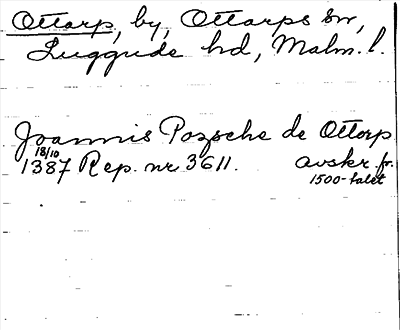 Ottarp, by, Ottarps sn,
Luggude hd, Malm. l.
Joannis Pozsche de Ottorp
18/10
1387 Rep. nr 3611. avskr. fr.
1500-talet